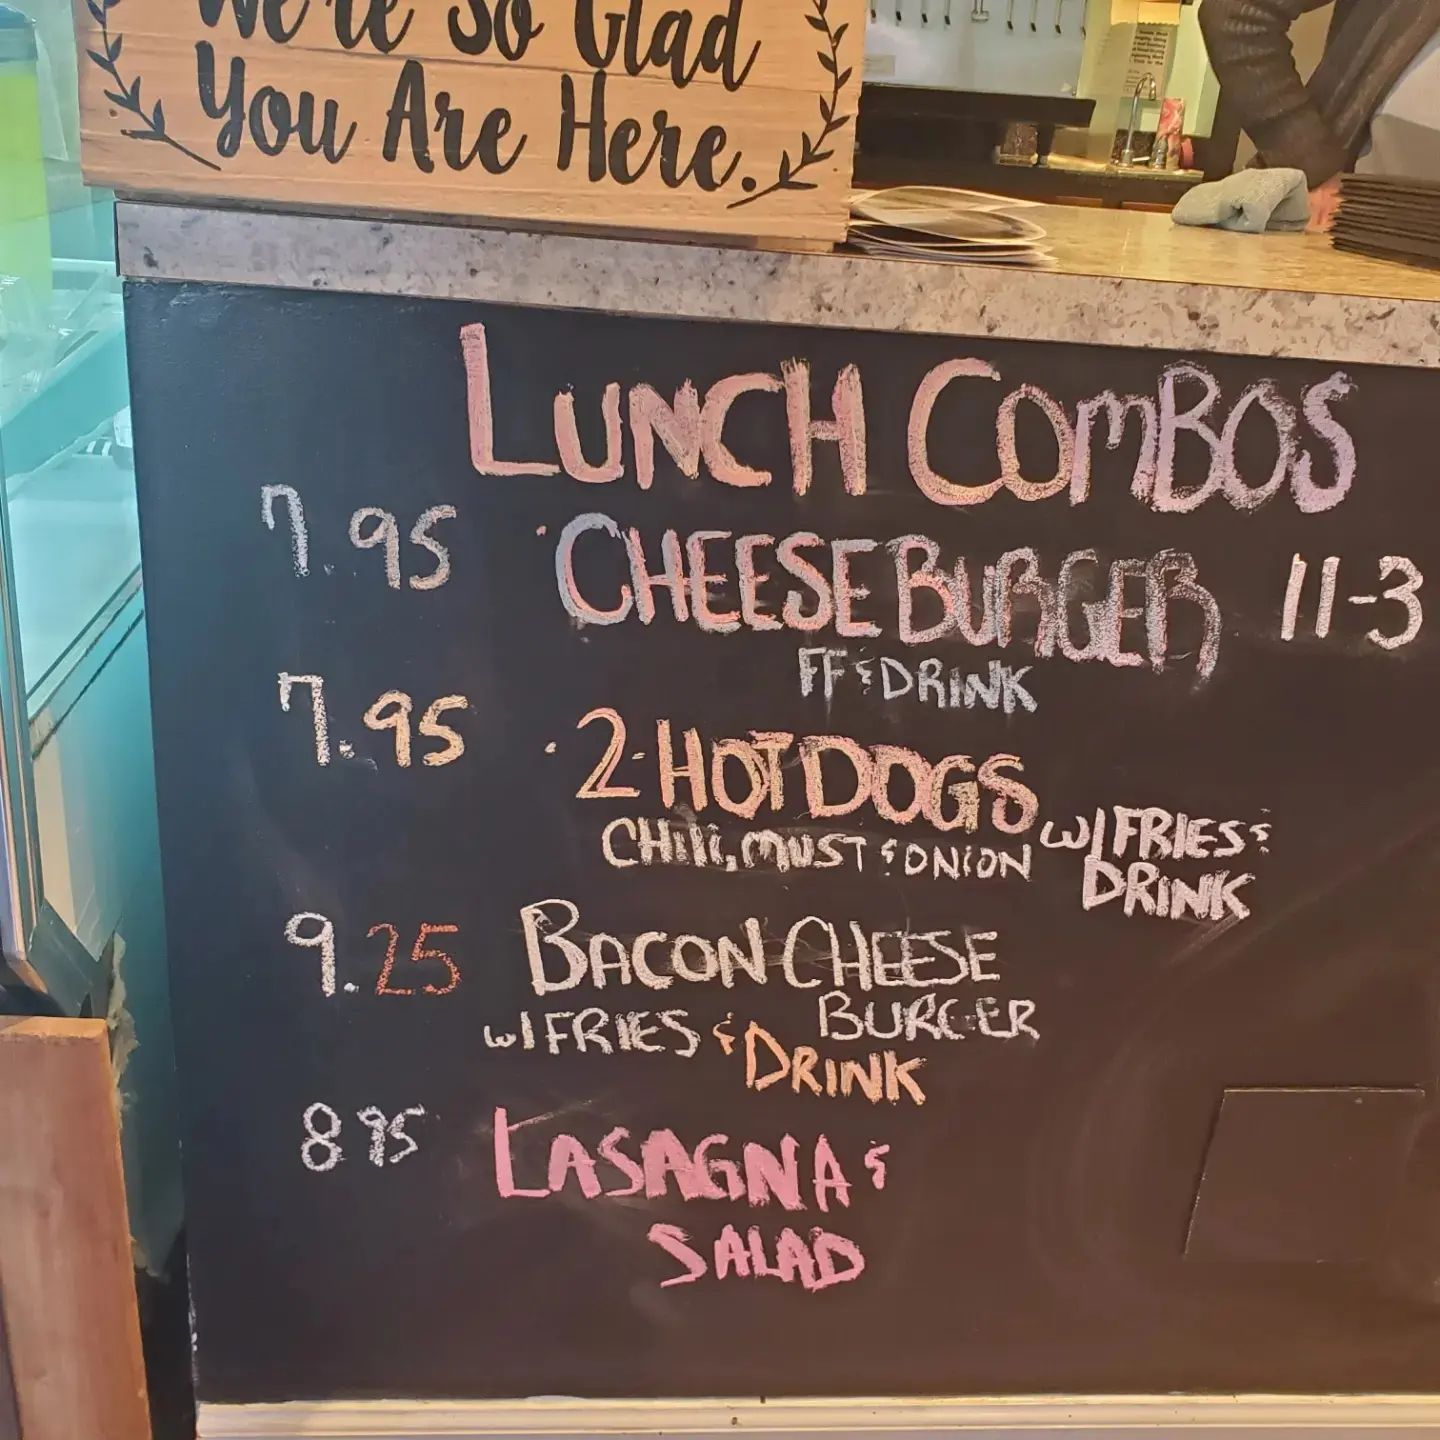 We're So Glad
You Are Here.
LUNCH COMBOS
7.95 · CHEESE BURGER 11-3
FF & DRINK
7.95 · 2-HOT DOGS
CHili, MUST & ONION W/ FRIES &
DRINK
9.25 BACON CHEESE
BURGER
W/ FRIES & DRINK
8 95 LASAGNA &
SALAD